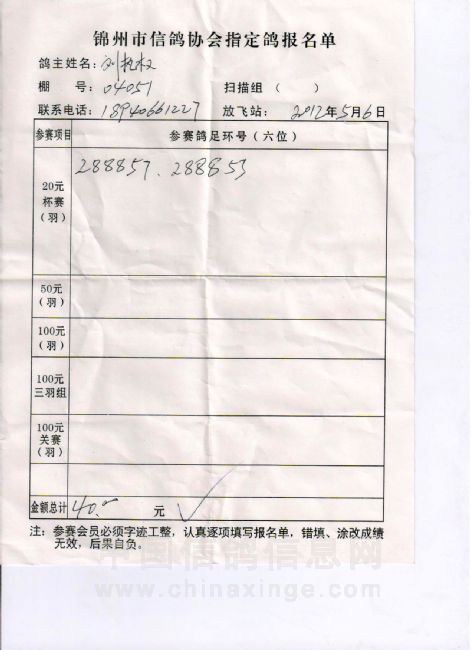 锦州市信鸽协会指定鸽报名单
鸽主姓名：刘
棚 号：04051 扫描组（ ）
联系电话：18940661227 放飞站： 2012年5月6日
参赛项目 参赛鸽足环号（六位）
20元 杯赛 （羽） 288857、288853
50元 （羽）
100元 （羽）
100元 三羽组
100元 关赛 （羽）
金额总计 40.00 元 ✓
注：参赛会员必须字迹工整，认真逐项填写报名单，错填、涂改成绩
无效，后果自负。
中国信鸽信息网
www.chinaxinge.com